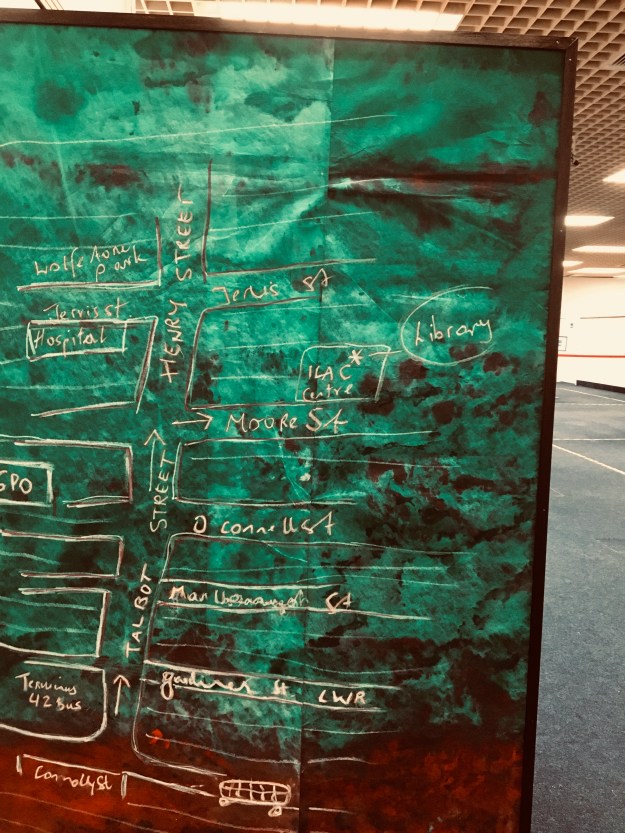 Wolfe Tone
Park
HENRY STREET
Jervis St
Jervis st.
Hospital
Library
ILAC *
Centre
Moore St
GPO
TALBOT STREET
O connell St
St
gardiner St. LWR
Terminus
42 Bus
Connolly St